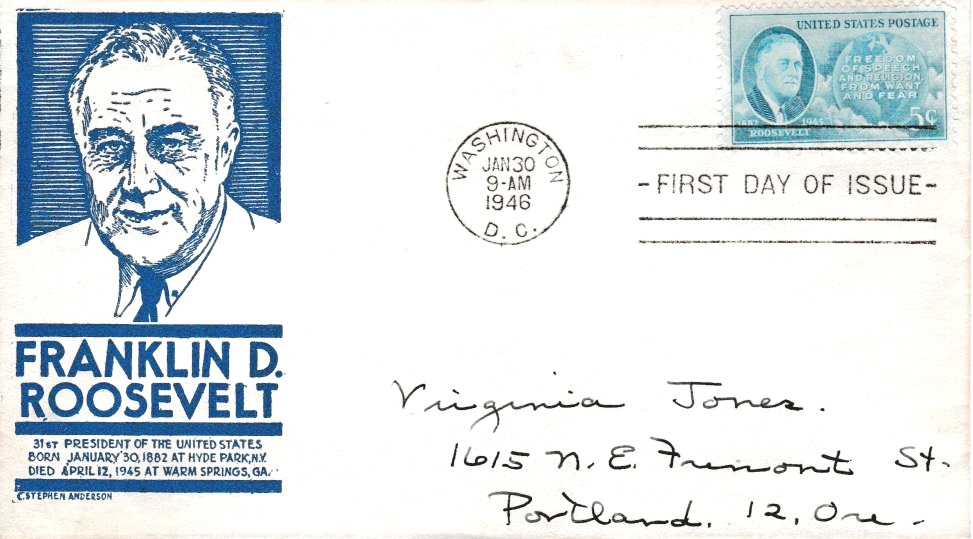 FRANKLIN D.
ROOSEVELT
31ST PRESIDENT OF THE UNITED STATES
BORN JANUARY 30, 1882 AT HYDE PARK, N.Y.
DIED APRIL 12, 1945 AT WARM SPRINGS, GA.
C. STEPHEN ANDERSON
WASHINGTON
JAN 30
9-AM
1946
D. C.
UNITED STATES POSTAGE
FREEDOM
OF SPEECH
AND RELIGION,
FROM WANT
AND FEAR
1882 1945
ROOSEVELT
5¢
-FIRST DAY OF ISSUE-
Virginia Jones.
1615 N. E. Fremont St.
Portland, 12, Ore.